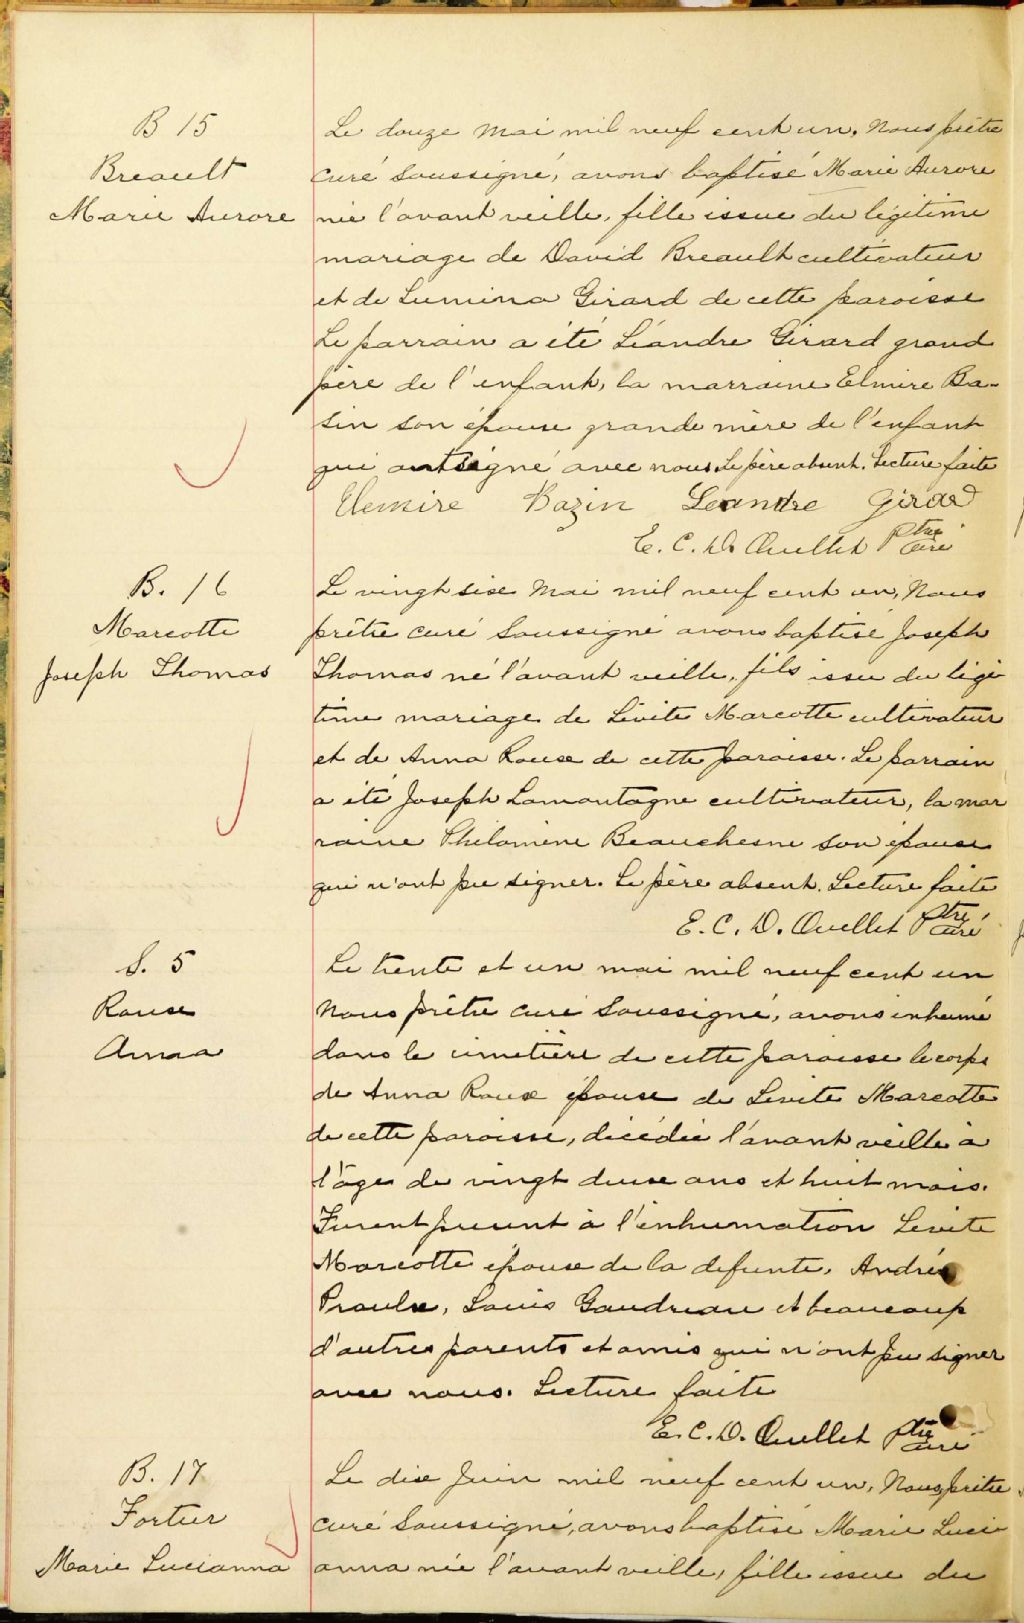 B 15
Breault
Marie Aurore
Le douze Mai mil neuf cent un, Nous prêtre
curé soussigné, avons baptisé Marie Aurore
née l'avant veille, fille issue du légitime
mariage de David Breault cultivateur
et de Lumina Girard de cette paroisse
Le parrain a été Léandre Girard grand
père de l'enfant, la marraine Elmire Ba-
sin son épouse grande mère de l'enfant
qui ont signé avec nous. Le père absent. Lecture faite
Elemire Bazin Leandre Girard
E. C. D. Ouellet Ptre curé
B. 16
Marcotte
Joseph Thomas
Le vingt sixe Mai mil neuf cent un, Nous
prêtre curé soussigné avons baptisé Joseph
Thomas né l'avant veille, fils issu du légi
time mariage de Lévite Marcotte cultivateur
et de Anna Rouse de cette paroisse. Le parrain
a été Joseph Lamontagne cultivateur, la mar
raine Philomène Beauchesne son épouse
qui n'ont pu signer. Le père absent. Lecture faite
E. C. D. Ouellet Ptre curé
S. 5
Rouse
Anna
Le trente et un mai mil neuf cent un
Nous prêtre curé soussigné, avons inhumé
dans le cimetière de cette paroisse le corps
de Anna Rouse épouse de Levite Marcotte
de cette paroisse, décédée l'avant veille à
l'âge de vingt deuxe ans et huit mois.
Furent présent à l'inhumation Levite
Marcotte épouse de la defunte, André
Proulx, Louis Gaudreau et beaucoup
d'autres parents et amis qui n'ont pu signer
avec nous. Lecture faite
E. C. D. Ouellet Ptre curé
B. 17
Fortier
Marie Lucianna
Le dixe Juin mil neuf cent un, Nous prêtre
curé soussigné, avons baptisé Marie Luci
anna née l'avant veille, fille issue du